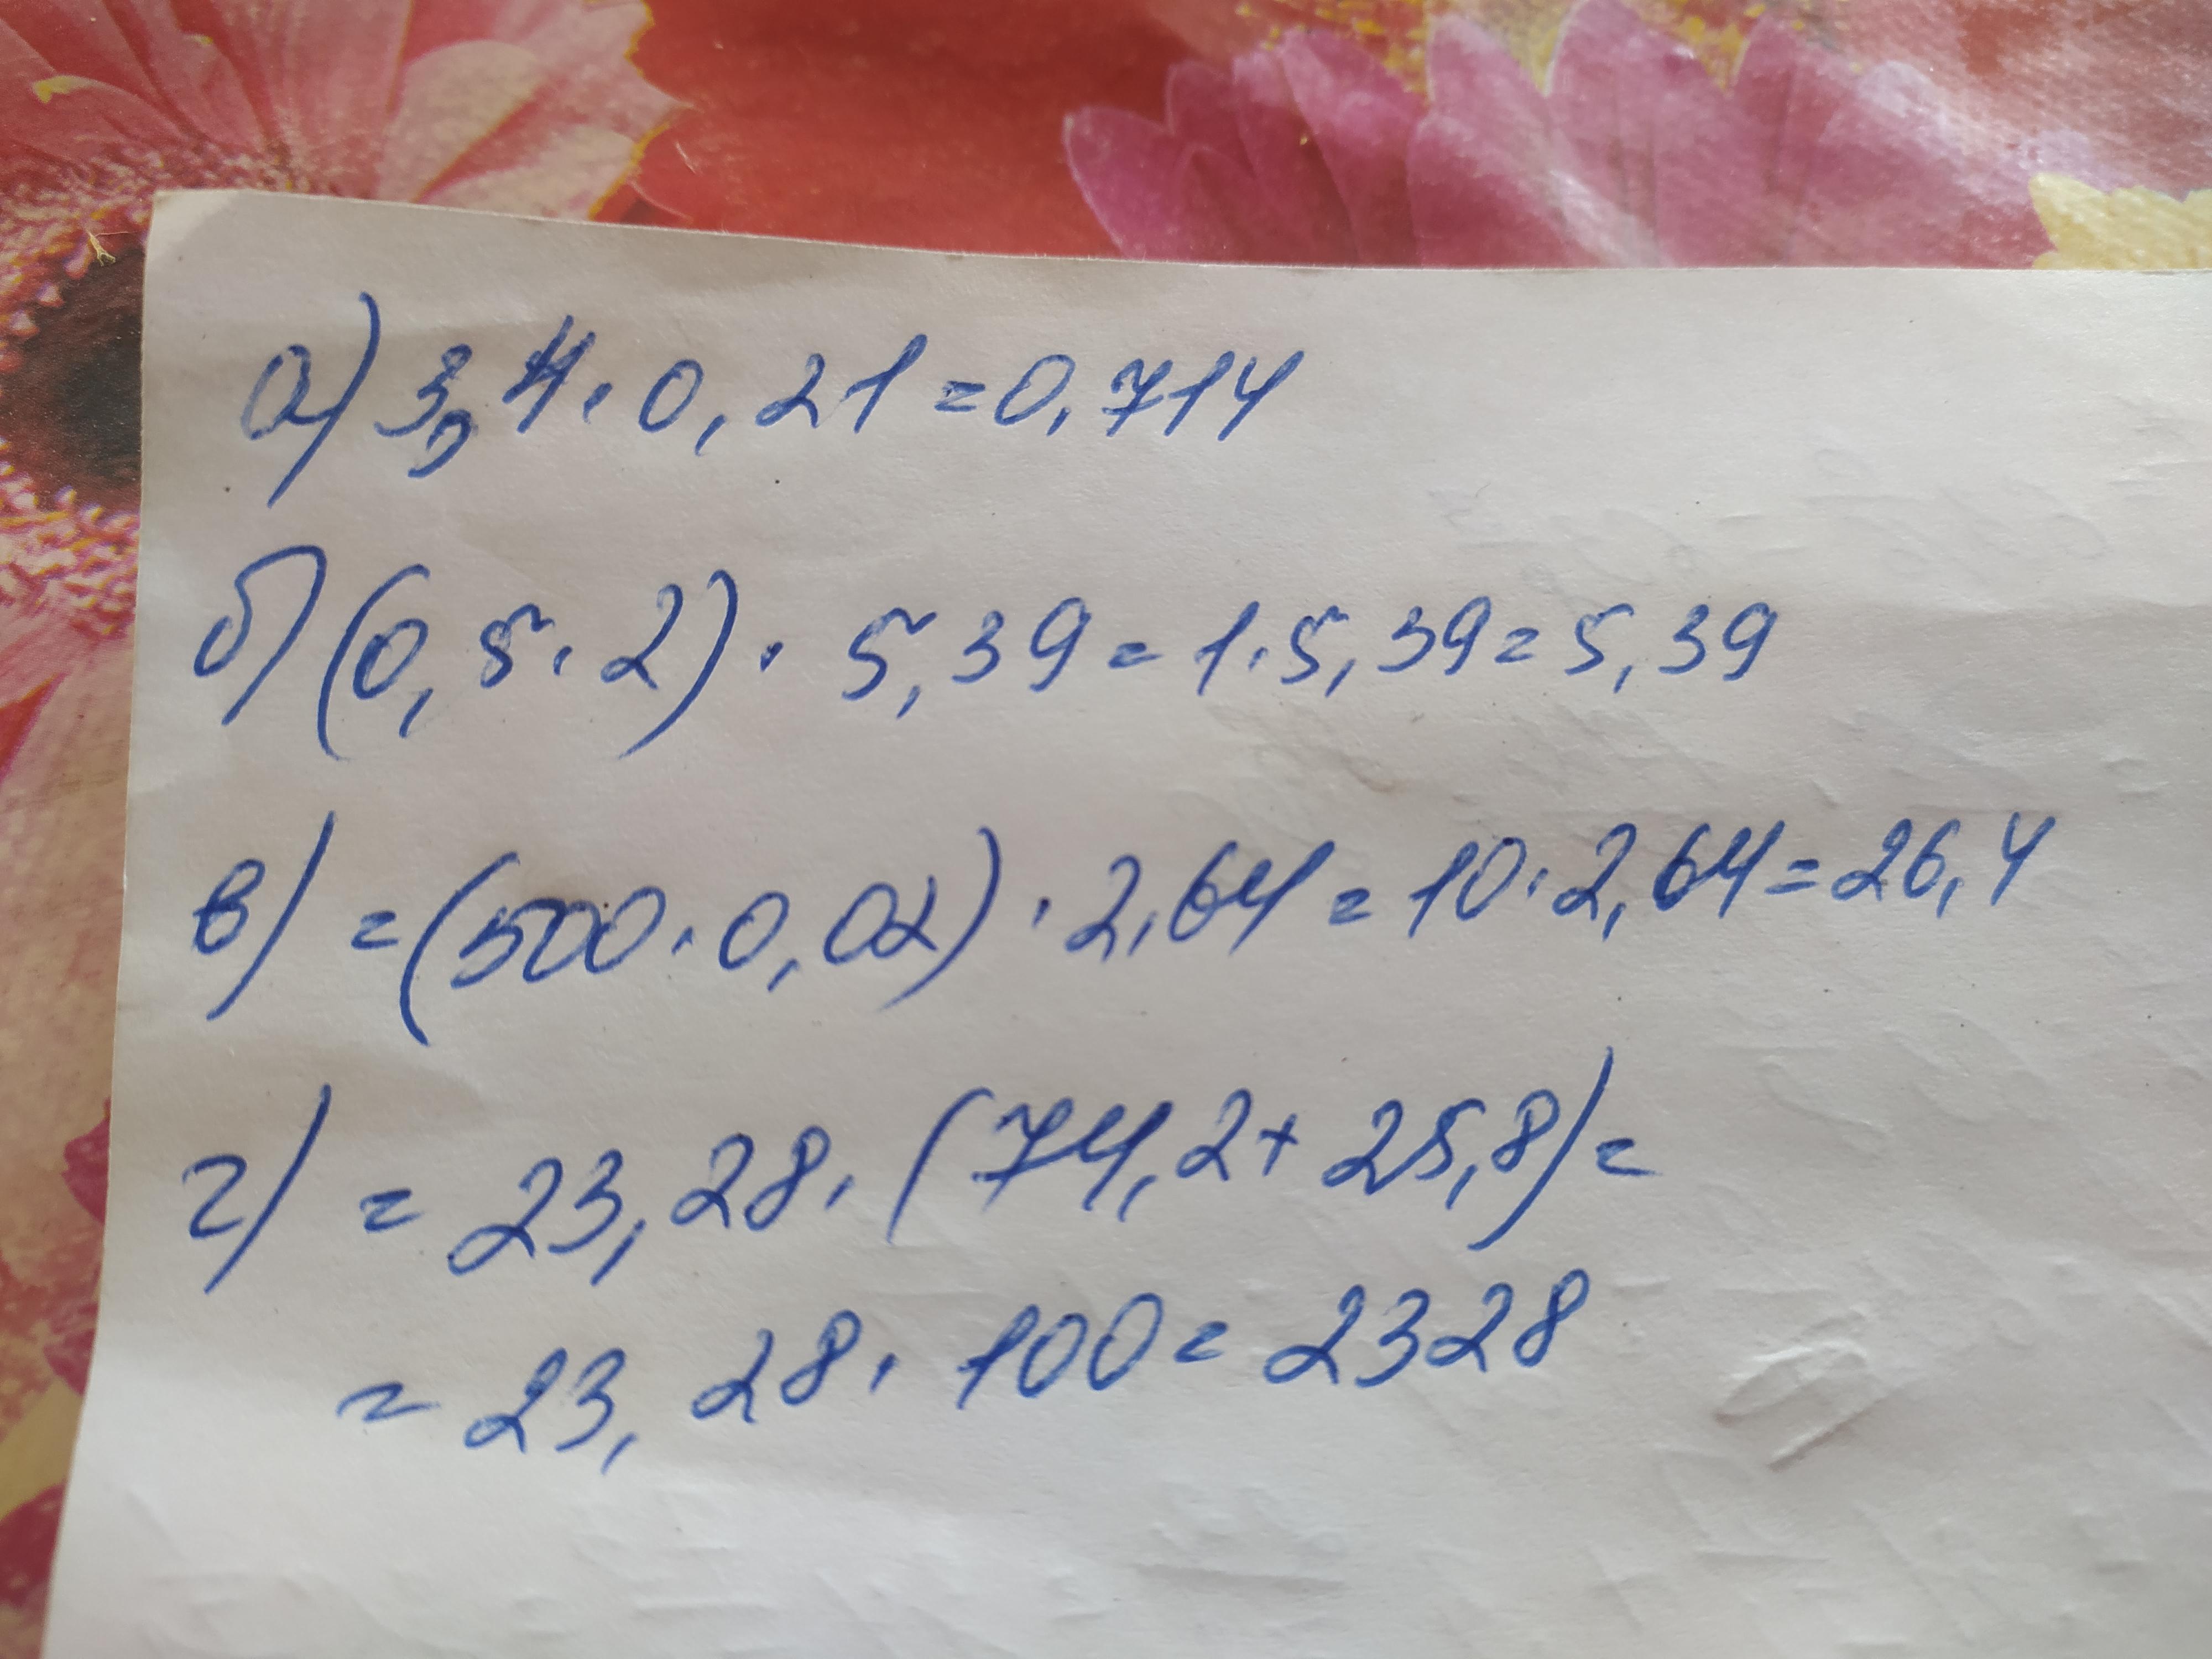 а) 3,4·0,21=0,714
б) (0,5·2)·5,39=1·5,39=5,39
в) =(500·0,02)·2,64=10·2,64=26,4
г) =23,28·(74,2+25,8)=
=23,28·100=2328